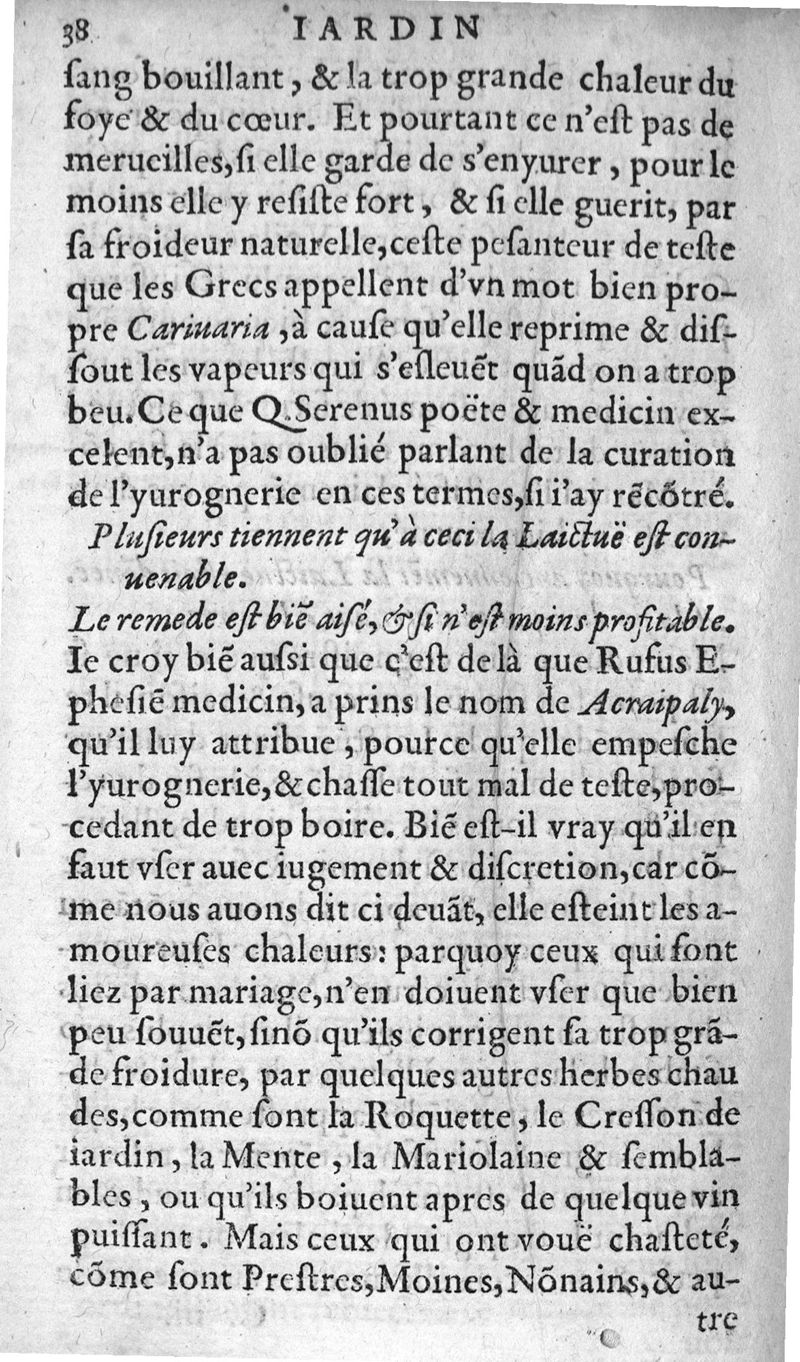 38 IARDIN
ſang bouillant, & la trop grande chaleur du
foye & du cœur. Et pourtant ce n'eſt pas de
merueilles, ſi elle garde de s'enyurer, pour le
moins elle y reſiſte fort, & ſi elle guerit, par
ſa froideur naturelle, ceſte peſanteur de teſte
que les Grecs appellent d'vn mot bien pro-
pre Cariuaria, à cauſe qu'elle reprime & diſ-
ſout les vapeurs qui s'eſleuẽt quãd on a trop
beu. Ce que Q. Serenus poëte & medicin ex-
celent, n'a pas oublié parlant de la curation
de l'yurognerie en ces termes, ſi i'ay rẽcõtré.
Pluſieurs tiennent qu'à ceci la Laictuë eſt con-
uenable.
Le remede eſt biẽ aiſé, & ſi n'eſt moins profitable.
Ie croy biẽ auſsi que c'eſt de là que Rufus E-
pheſiẽ medicin, a prins le nom de Acraipaly,
qu'il luy attribue, pource qu'elle empeſche
l'yurognerie, & chaſſe tout mal de teſte, pro-
cedant de trop boire. Biẽ eſt-il vray qu'il en
faut vſer auec iugement & diſcretion, car cõ-
me nous auons dit ci deuãt, elle eſteint les a-
moureuſes chaleurs: parquoy ceux qui ſont
liez par mariage, n'en doiuent vſer que bien
peu ſouuẽt, ſinõ qu'ils corrigent ſa trop grã-
de froidure, par quelques autres herbes chau
des, comme ſont la Roquette, le Creſſon de
iardin, la Mente, la Mariolaine & ſembla-
bles, ou qu'ils boiuent apres de quelque vin
puiſſant. Mais ceux qui ont vouë chaſteté,
cõme ſont Preſtres, Moines, Nõnains, & au-
tre